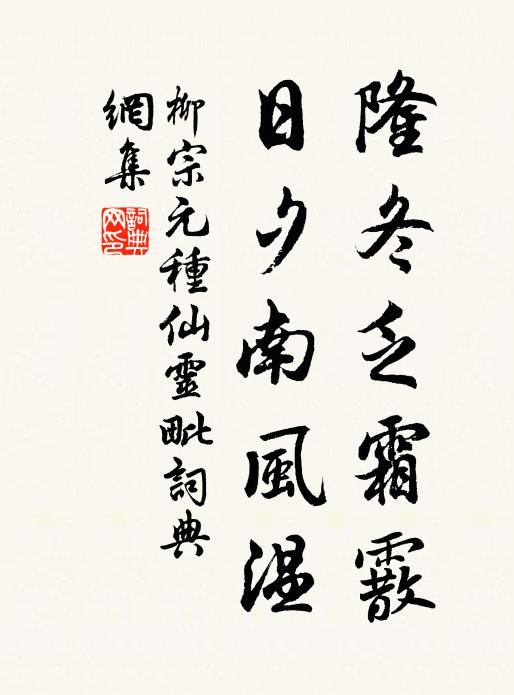 隆冬乏霜霰
日夕南風温
柳宗元種仙靈毗詞典
網集
詞典網印